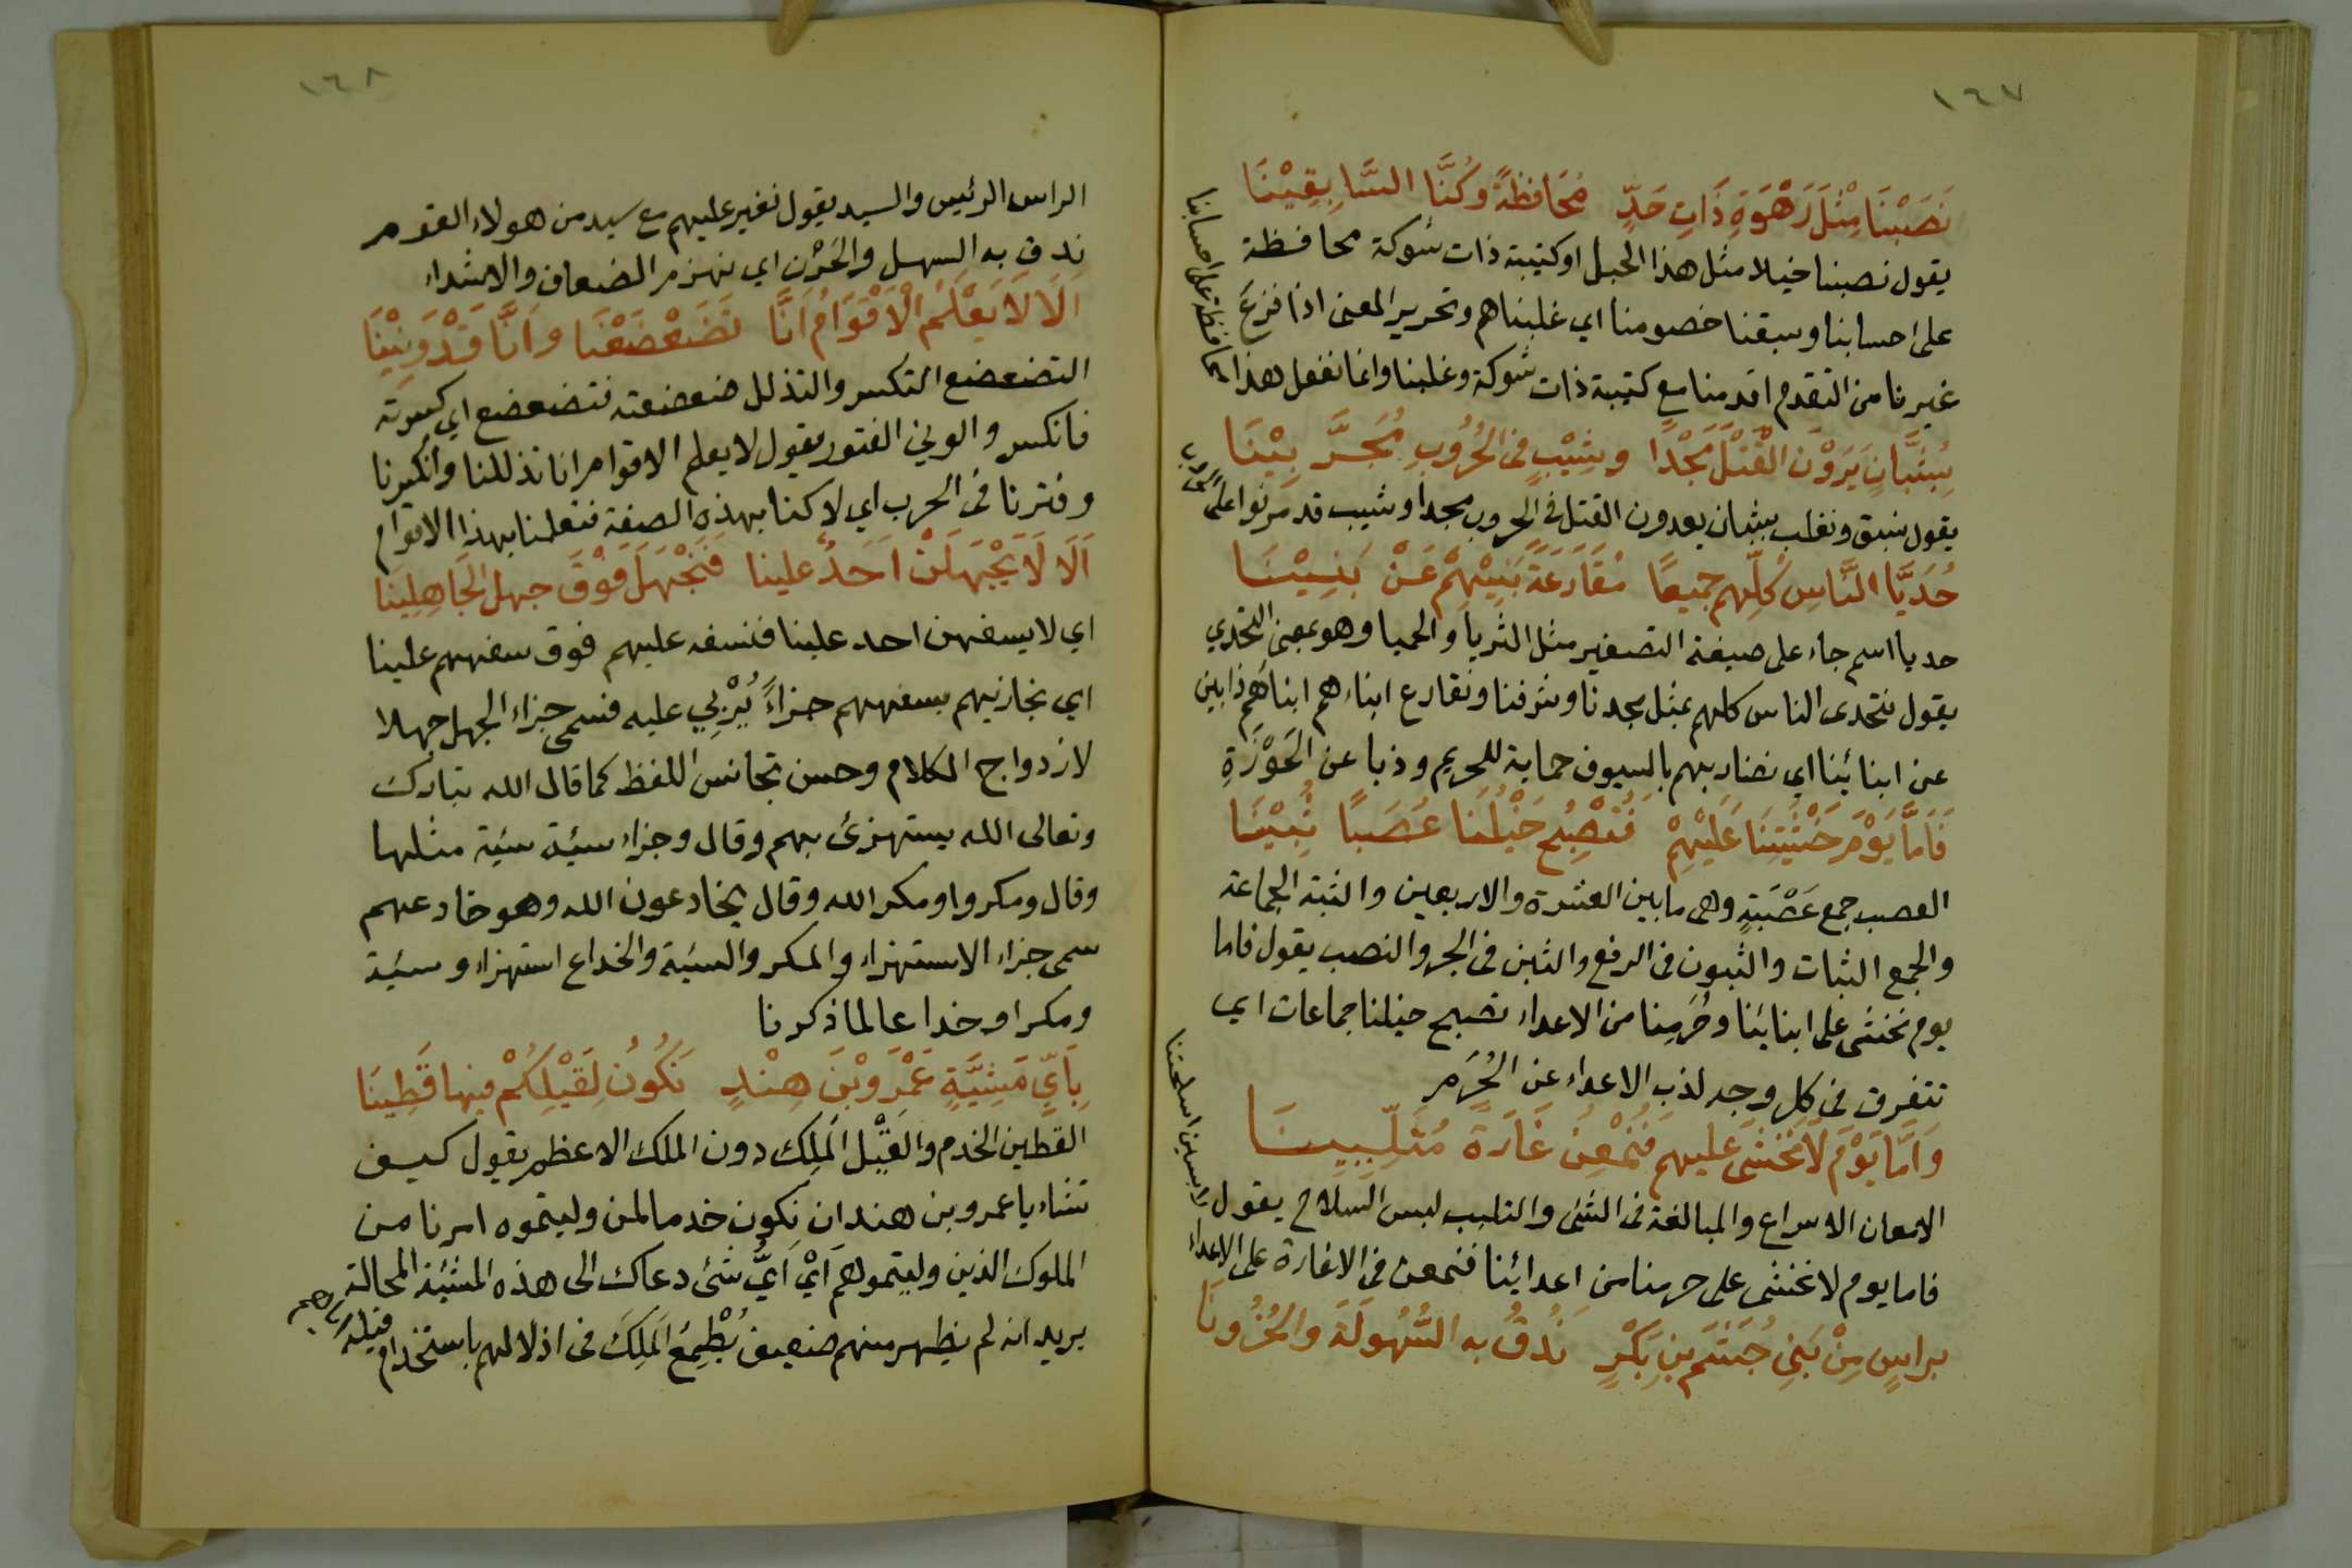 ١٦٧
نَصَبْنَا مِثْلَ رَهْوَةِ ذَاتِ حَدٍّ مُحَافَظَةً وَكُنَّا السَّابِقِيْنَا
يقول نصبنا خيلا مثل هذا الجبل او كتيبة ذات شوكة محافظة
على احسابنا وسبقنا خصومنا اي غلبناهم وتحرير المعنى اذا فزعَ
غيرنا من التقدم اقدمنا مع كتيبة ذات شوكة وغلبنا وانما نفعل هذا محافظة على احسابنا
بِشُبَّانٍ يَرَوْنَ الْقَتْلَ مَجْدًا وشِيْبٍ فى الحُرُوبِ مُجَرَّبِيْنَا
يقول نسبق ونغلب بشبان يعدون القتل فى الحروب مجدا وشيب قد مرنوا على الحروب
حُدَيَّا النَّاسِ كُلِّهِم جَمِيعًا مُقَارَعَةً بَنِيْهِمْ عَنْ بَنِيْنَا
حديا اسم جاء على صيغة التصغير مثل الثريا والحميا وهو بمعنى التحدي
يقول نتحدى الناس كلهم بمثل مجدنا وشرفنا ونقارع ابناءهم ابناءهم ذابين
عن ابنائنا اي نضاربهم بالسيوف حماية للحريم وذبا عن الحَوْزَةِ
فَامَّا يَوْمَ خَشْيَتِنَا عَلَيْهِمْ فَتُصْبِحُ خَيْلُنَا عُصَبًا ثُبِيْنَا
العصب جمع عَصْبَةٍ وهى ما بين العشرة والاربعين والثبة الجماعة
والجمع الثبات والثبون فى الرفع والثبن فى الجر والنصب يقول فاما
يوم نخشى على ابنائنا وحُرَمِنا من الاعداء تصبح خيلنا جماعات اي
تتفرق فى كل وجه لذب الاعداء عن الحُرَم
وَامَّا يَوْمَ لَا نَخْشَى عليهم فَنُمْعِنُ غَارَةً مُتَلَبِّبِيْنَا
الامعان الاسراع والمبالغة فى الشئ والتلبب لبس السلاح يقول
فاما يوم لا نخشى على حرمنا من اعدائنا فنمعن فى الاغارة على الاعداء لابسين اسلحتنا
براسٍ مِنْ بَنِي جُشَمِ بنِ بَكْرٍ نَدُقُّ به السُّهُولَةَ وَالحُزُونَا
١٦٨
الراس الرئيس والسيد يقول نغير عليهم مع سيد من هولاء القوم
ندق به السهل والحَزْن اي نهزم الضعاف والاشداء
اَلَا لَا يَعْلَمُ الْاَقْوَامُ اَنَّا تَضَعْضَعْنَا وَاَنَّا قَدْ وَنِيْنَا
التضعضع التكسر والتذلل ضعضعته فتضعضع اي كسرته
فانكسر والونى الفتور يقول لا يعلم الاقوام انا تذللنا وانكسرنا
وفترنا فى الحرب اي لا كنا بهذه الصفة فتعلمنا بهذا الاقوام
اَلَا لَا يَجْهَلَنْ اَحَدٌ علينا فَنَجْهَلَ فَوْقَ جهل الجَاهِلِينَا
اي لا يسفهن احد علينا فنسفه عليهم فوق سفههم علينا
اي نجازيهم بسفههم جزاءً يُرْبِي عليه فسمى جزاء الجهل جهلا
لازدواج الكلام وحسن تجانس اللفظ كما قال الله تبارك
وتعالى الله يستهزئ بهم وقال وجزاء سيئة سيئة مثلها
وقال ومكروا ومكر الله وقال يخادعون الله وهو خادعهم
سمى جزاء الاستهزاء والمكر والسيئة والخداع استهزاء وسيئة
ومكرا وخداعا لما ذكرنا
بِاَيِّ مَشِيَّةٍ عَمْرَو بْنَ هِنْدٍ نَكُونُ لِقَيْلِكُمْ فيها قَطِينَا
القطين الخدم والقَيْل المَلِك دون الملك الاعظم يقول كيف
تشاء يا عمرو بن هند ان نكون خدما لمن وليتموه امرنا من
الملوك الذين وليتموهم اَيْ اَيُّ شئ دعاك الى هذه المشيئة المحالة
يريد انه لم يظهر منهم ضعيف يُطْمِعُ المَلِكَ فى اذلالهم باستخدام قيله اياهم